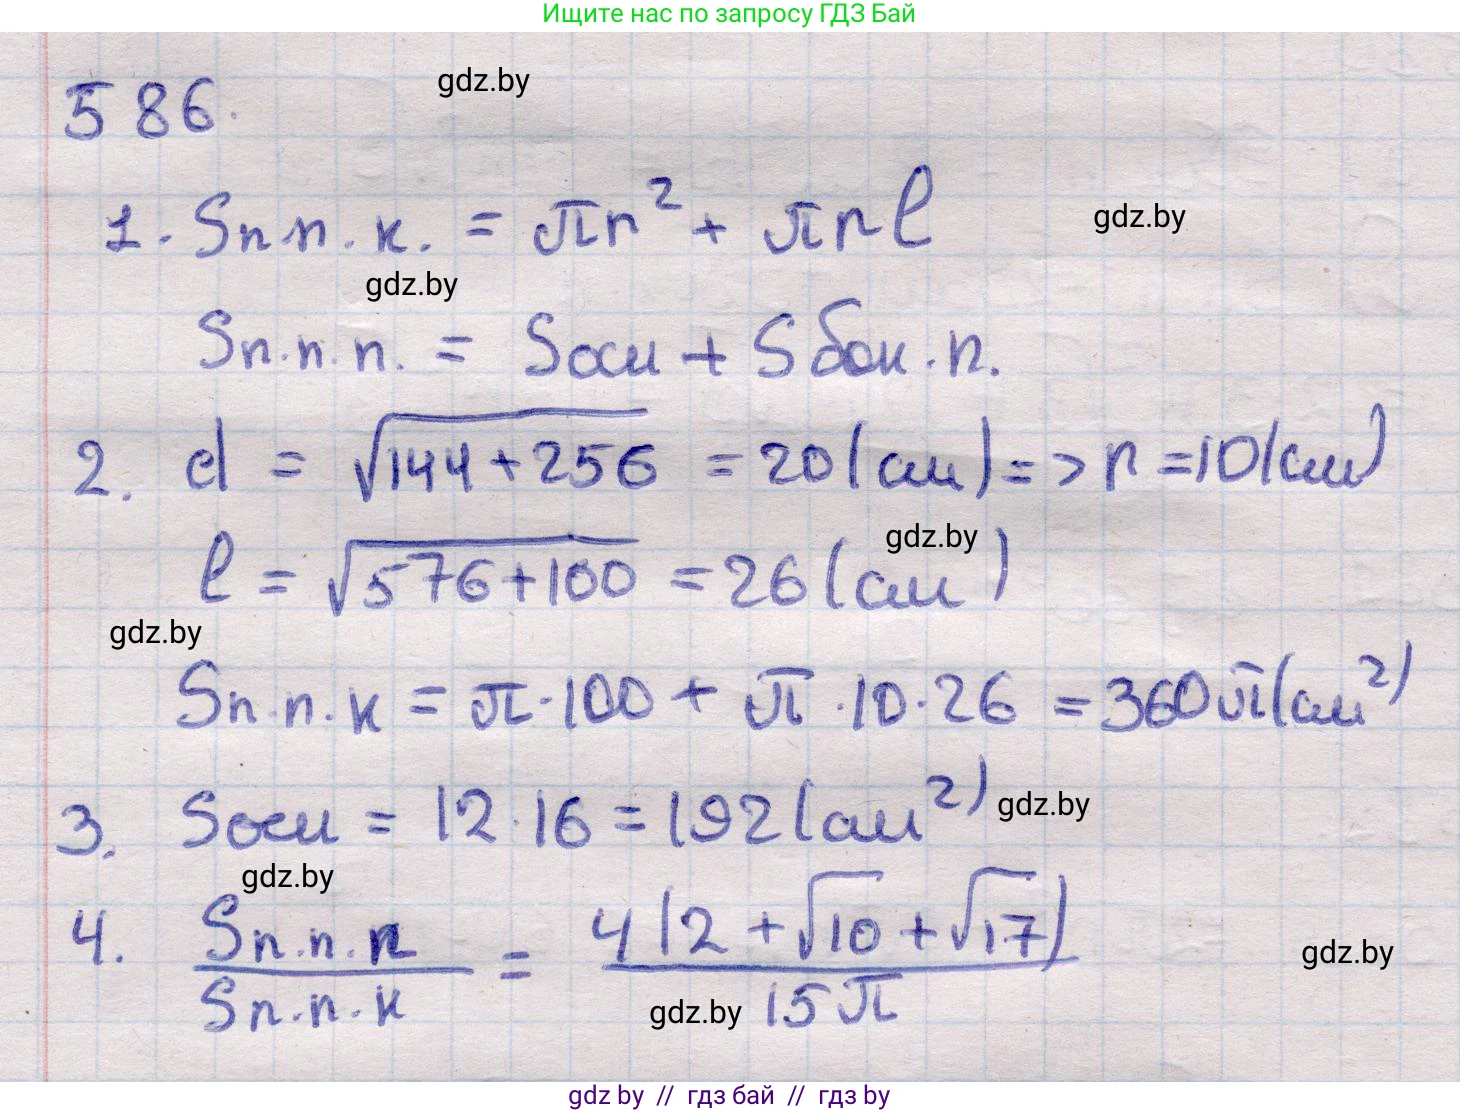 Ищите нас по запросу ГДЗ Бай
586.
gdz.by
1. Sп.п.к. = πr² + πrl
gdz.by
gdz.by
Sп.п.п. = Sосн + Sбок.п.
2. d = √144+256 = 20(см) => r = 10(см)
gdz.by
l = √576+100 = 26(см)
gdz.by
Sп.п.к = π·100 + π·10·26 = 360π(см²)
3. Sосн = 12·16 = 192(см²)
gdz.by
gdz.by
4. Sп.п.п / Sп.п.к = 4(2+√10+√17) / 15π
gdz.by
gdz.by
gdz by // гдз бай // гдз by